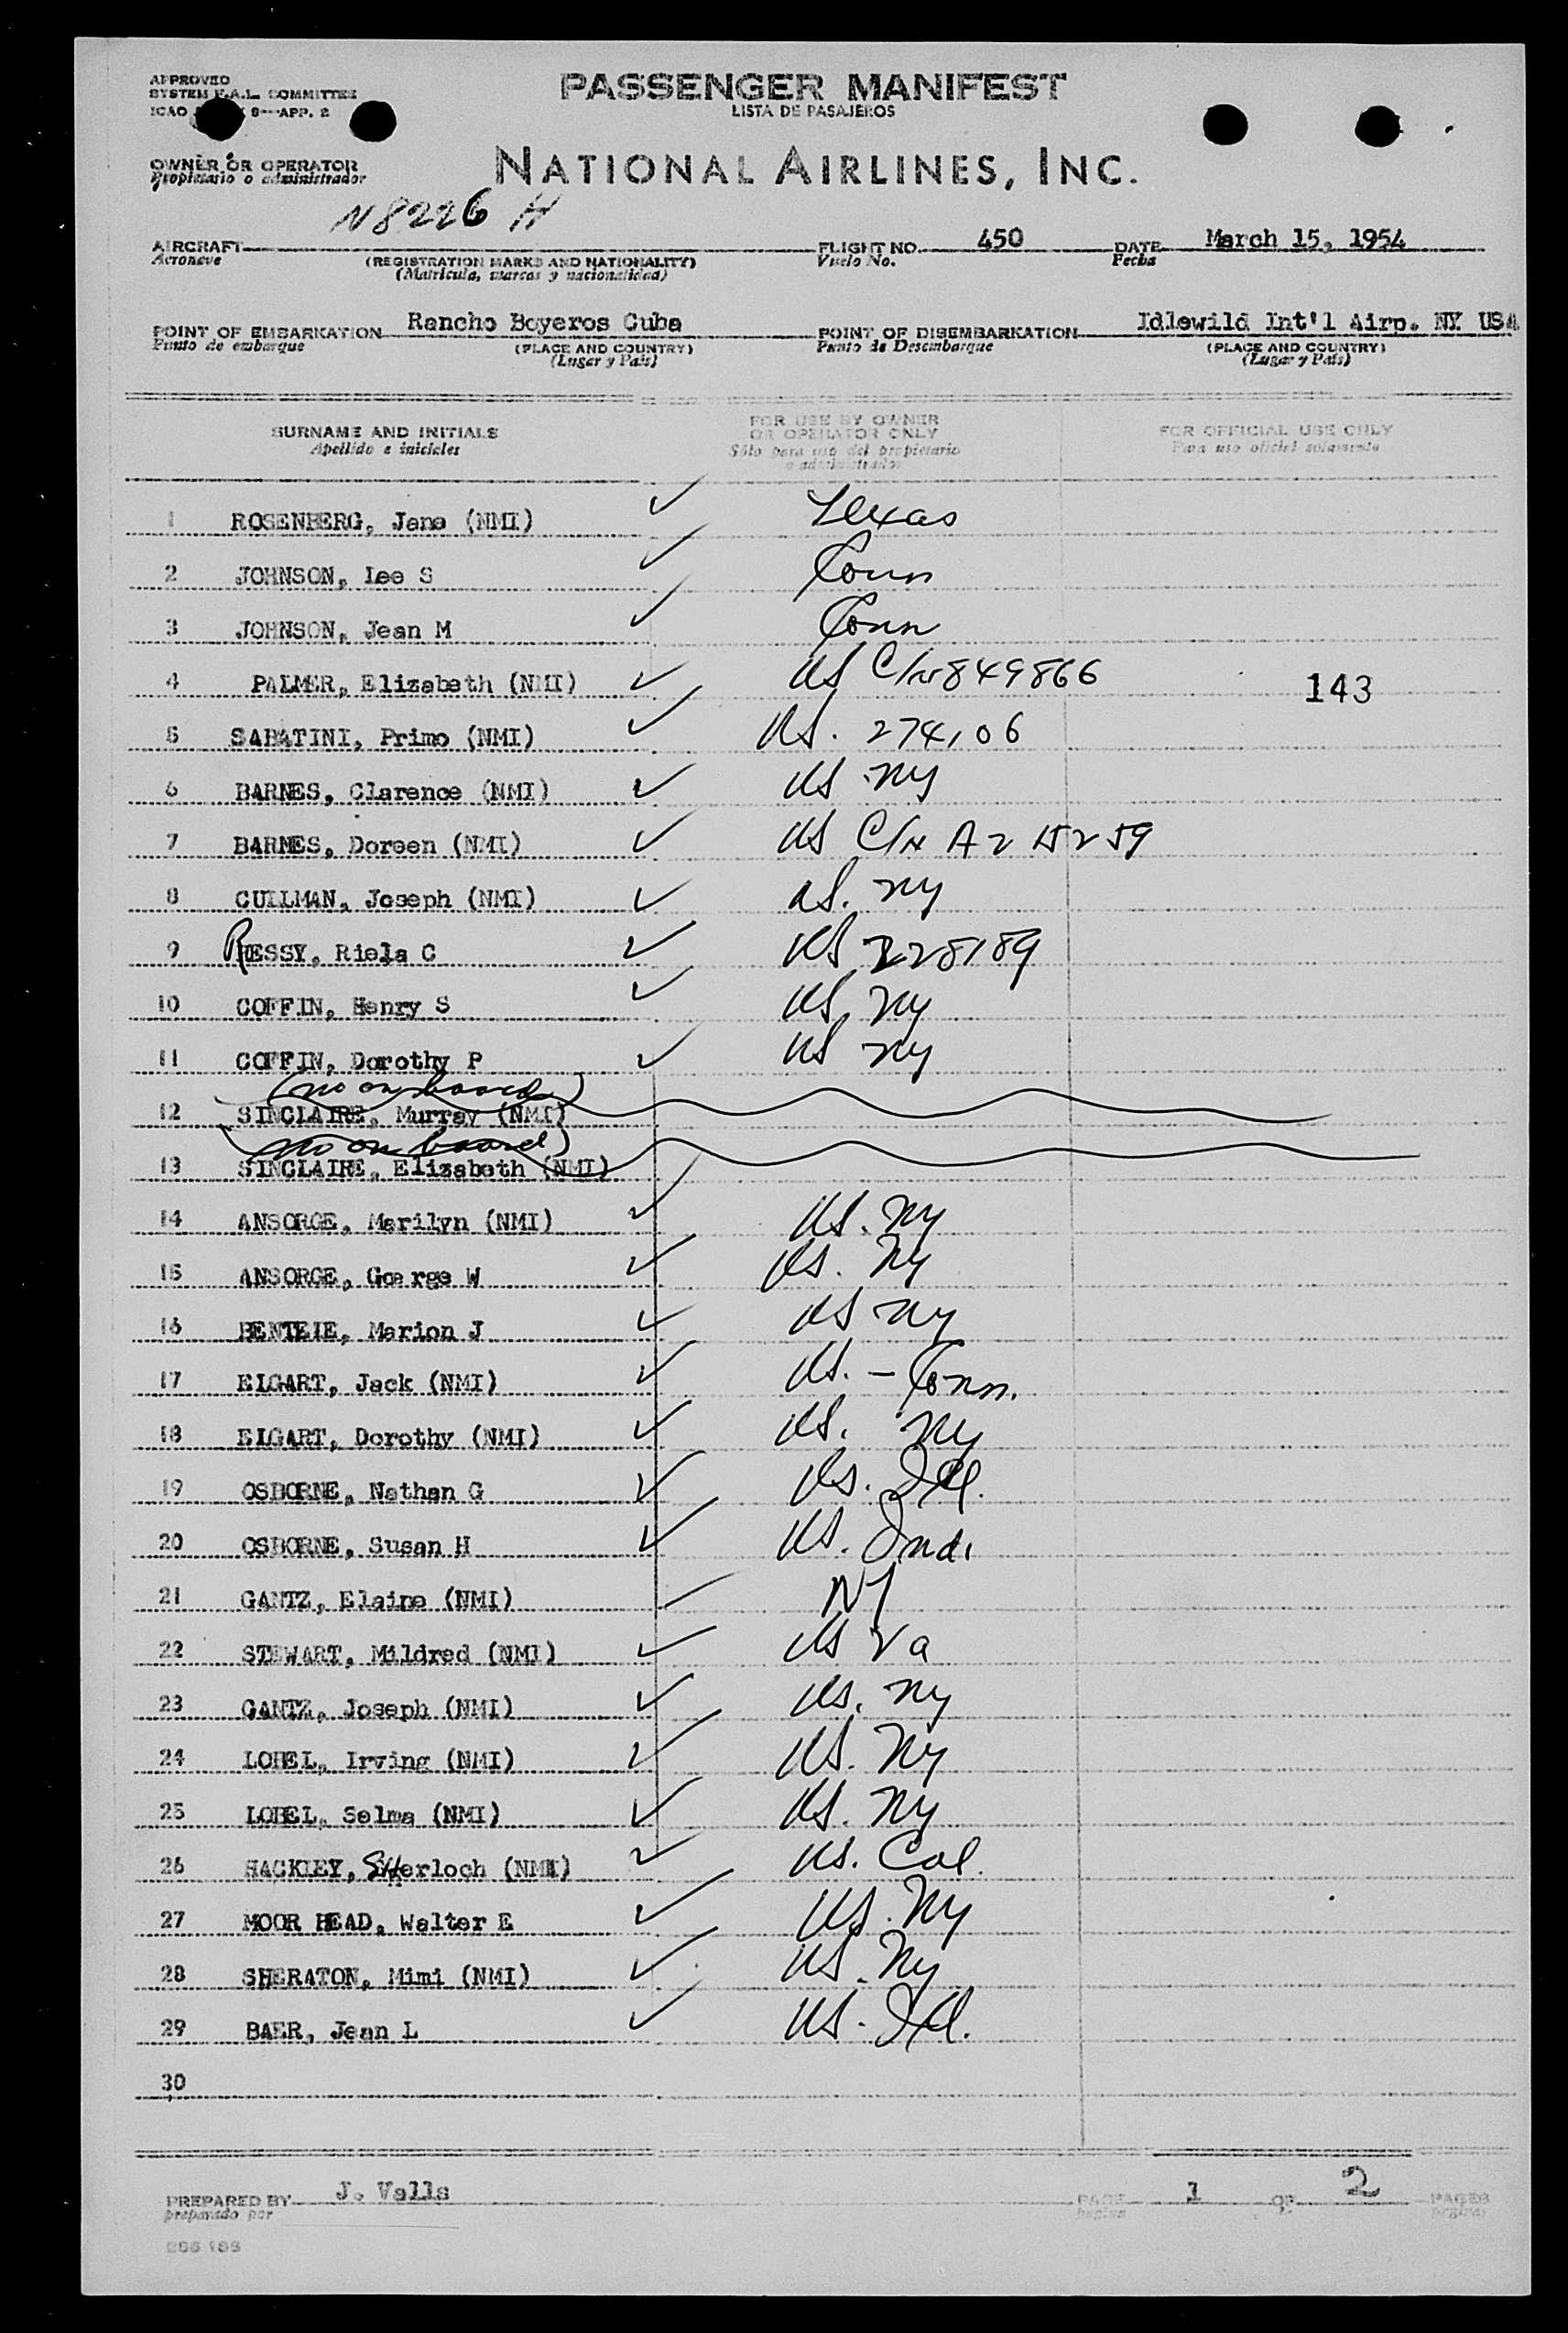 APPROVED
SYSTEM F.A.L. COMMITTEE
ICAO 8-APP. 2
PASSENGER MANIFEST
LISTA DE PASAJEROS
OWNER OR OPERATOR
Propietario o administrador
NATIONAL AIRLINES, INC.
N8226H
AIRCRAFT
Aeronave
(REGISTRATION MARKS AND NATIONALITY)
(Matricula, marcas y nacionalidad)
FLIGHT NO. 450
Vuelo No.
DATE March 15, 1954
Fecha
POINT OF EMBARKATION Rancho Boyeros Cuba
Punto de embarque
(PLACE AND COUNTRY)
(Lugar y País)
POINT OF DISEMBARKATION Idlewild Int'l Airp. NY USA
Punto de Desembarque
(PLACE AND COUNTRY)
(Lugar y País)
SURNAME AND INITIALS
Apellido e iniciales
FOR USE BY OWNER
OR OPERATOR ONLY
Sólo para uso del propietario
o administrador
FOR OFFICIAL USE ONLY
Para uso oficial solamente
1 ROSENBERG, Jane (NMI) ✓ Texas
2 JOHNSON, Lee S ✓ Conn
3 JOHNSON, Jean M ✓ Conn
4 PALMER, Elizabeth (NMI) ✓ US C/N 849866 143
5 SABATINI, Primo (NMI) ✓ US. 274106
6 BARNES, Clarence (NMI) ✓ US NY
7 BARNES, Doreen (NMI) ✓ US C/N A215259
8 CULLMAN, Joseph (NMI) ✓ US. NY
9 RESSY, Riela C ✓ US 228189
10 COFFIN, Henry S ✓ US NY
11 COFFIN, Dorothy P ✓ US NY
(no on board)
12 SINCLAIRE, Murray (NMI)
(no on board)
13 SINCLAIRE, Elizabeth (NMI)
14 ANSORGE, Marilyn (NMI) ✓ US. NY
15 ANSORGE, Goerge W ✓ US. NY
16 Marion J ✓ US NY
17 ELGART, Jack (NMI) ✓ US. - Conn.
18 ELGART, Dorothy (NMI) ✓ US. NY
19 OSBORNE, Nathan G ✓ US. Ill.
20 OSBORNE, Susan H ✓ US. Ind.
21 GANTZ, Elaine (NMI) NY
22 STEWART, Mildred (NMI) ✓ US Va
23 GANTZ, Joseph (NMI) ✓ US. NY
24 LOBEL, Irving (NMI) ✓ US. NY
25 LOBEL, Selma (NMI) ✓ US. NY
26 HACKLEY, SHerloch (NMI) ✓ US. Cal.
27 MOOR HEAD, Walter E ✓ US. NY
28 SHERATON, Mimi (NMI) ✓ US. NY
29 BAER, Jean L ✓ US. Ill.
30
PREPARED BY J. Valls
preparado por
PAGE 1 OF 2 PAGES
pagina paginas